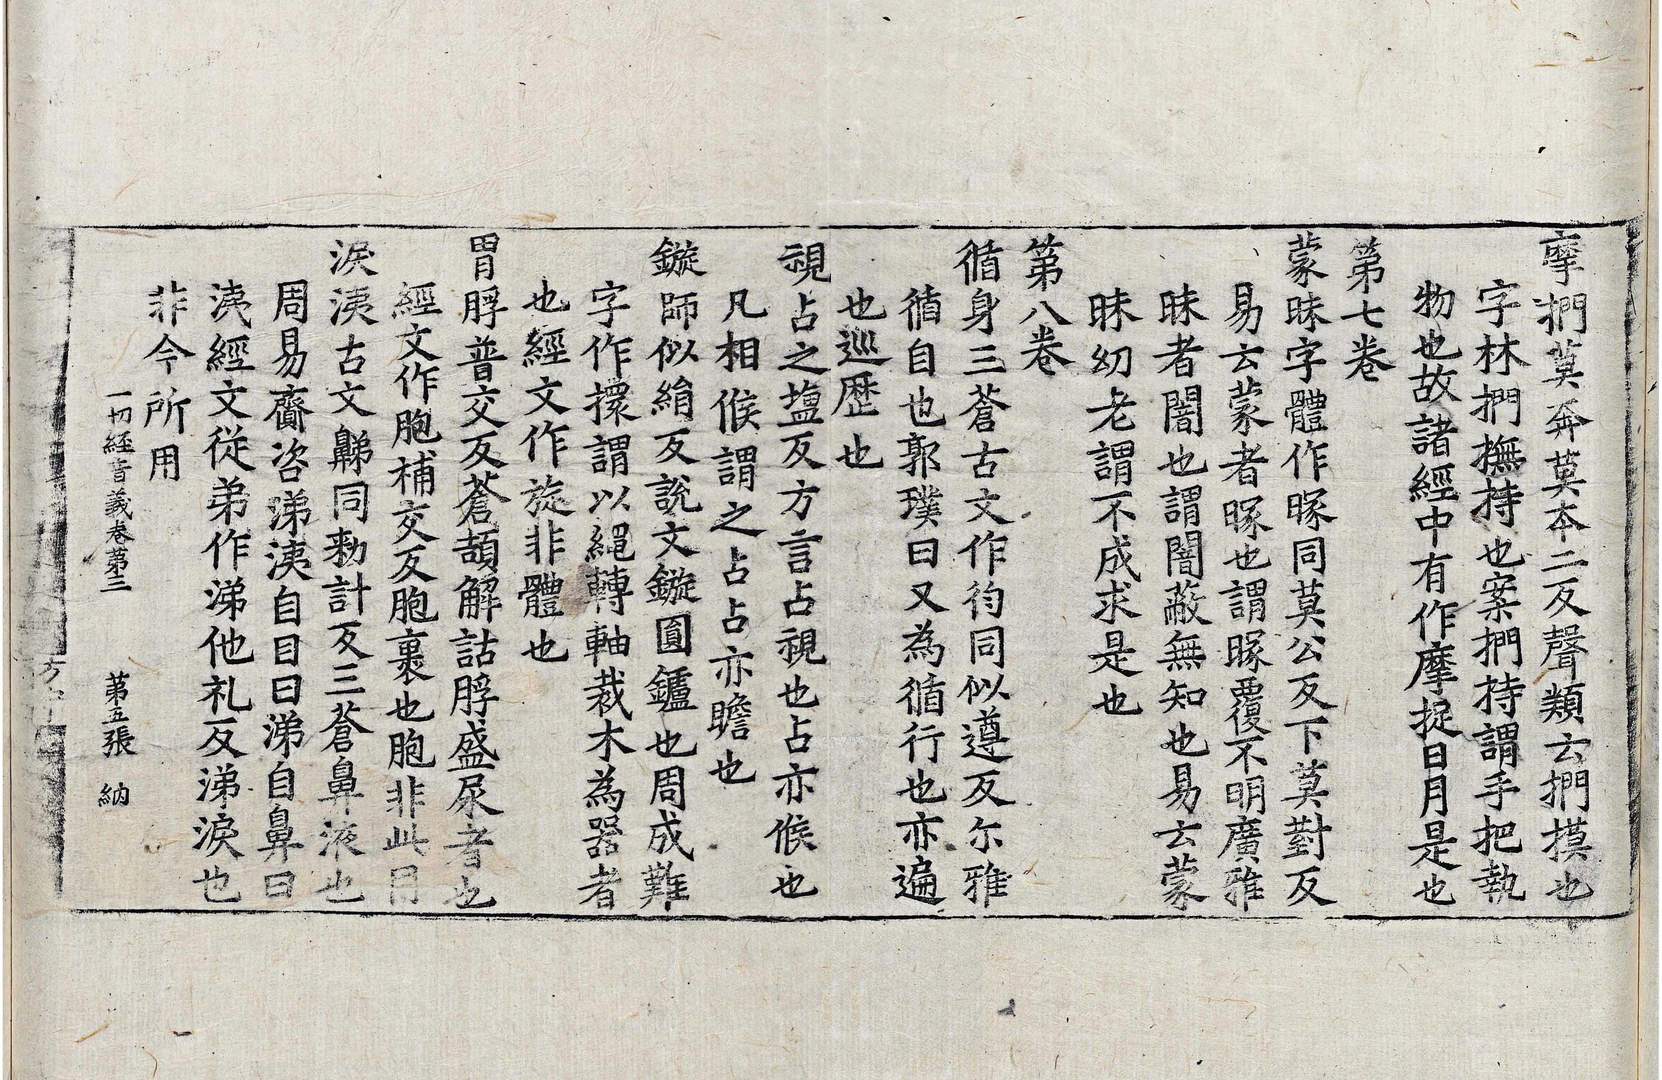 摩捫莫奔莫本二反聲類云捫摸也
字林捫撫持也案捫持謂手把執
物也故諸經中有作摩捉日月是也
第七卷
蒙昧字體作䏵同莫公反下莫對反
易云蒙者䏵也謂䏵覆不明廣雅
昧者闇也謂闇蔽無知也易云蒙
昧幼老謂不成求是也
第八卷
循身三蒼古文作徇同似遵反尒雅
循自也郭璞曰又為循行也亦遍
也巡歷也
視占之塩反方言占視也占亦候也
凡相候謂之占占亦瞻也
鏇師似絹反說文鏇圓鑪也周成難
字作㯢謂以繩轉軸裁木為器者
也經文作旋非體也
胃脬普交反蒼頡解詁脬盛尿者也
經文作胞補交反胞裹也胞非此用
涙洟古文鵜同勑計反三蒼鼻液也
周易齎咨涕洟自目曰涕自鼻曰
洟經文從弟作涕他礼反涕淚也
非今所用
一切經音義卷第三 第五張 納